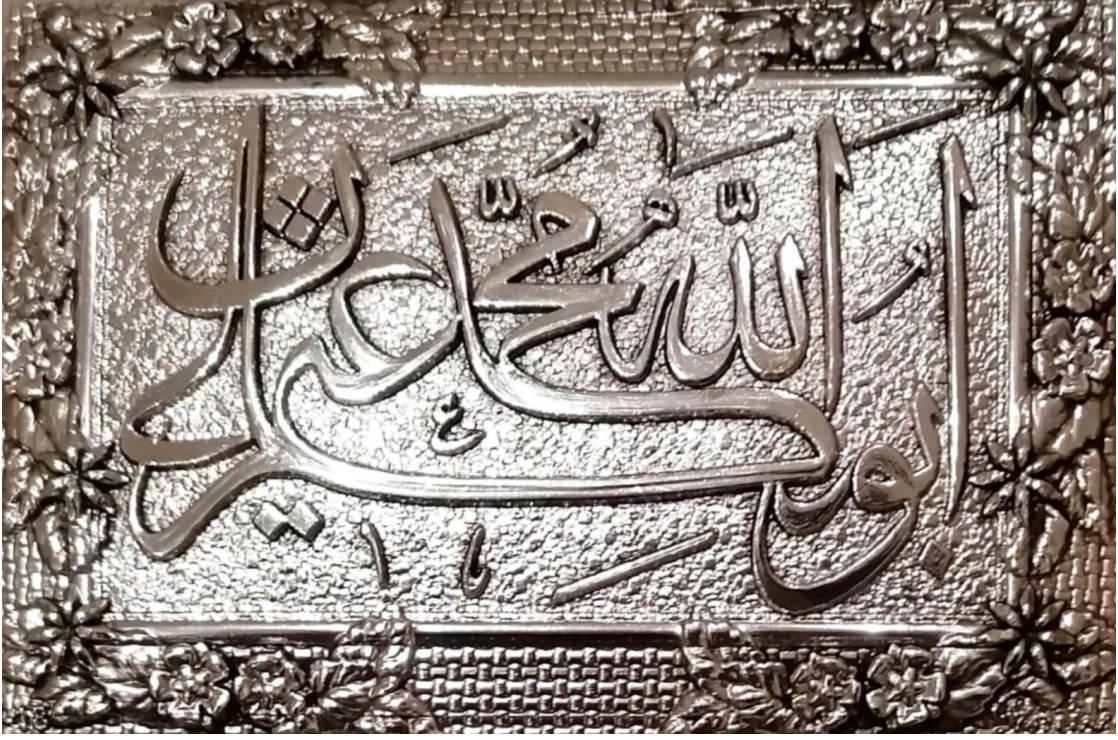 الله محمد
ابوبكر عمر عثمان علي